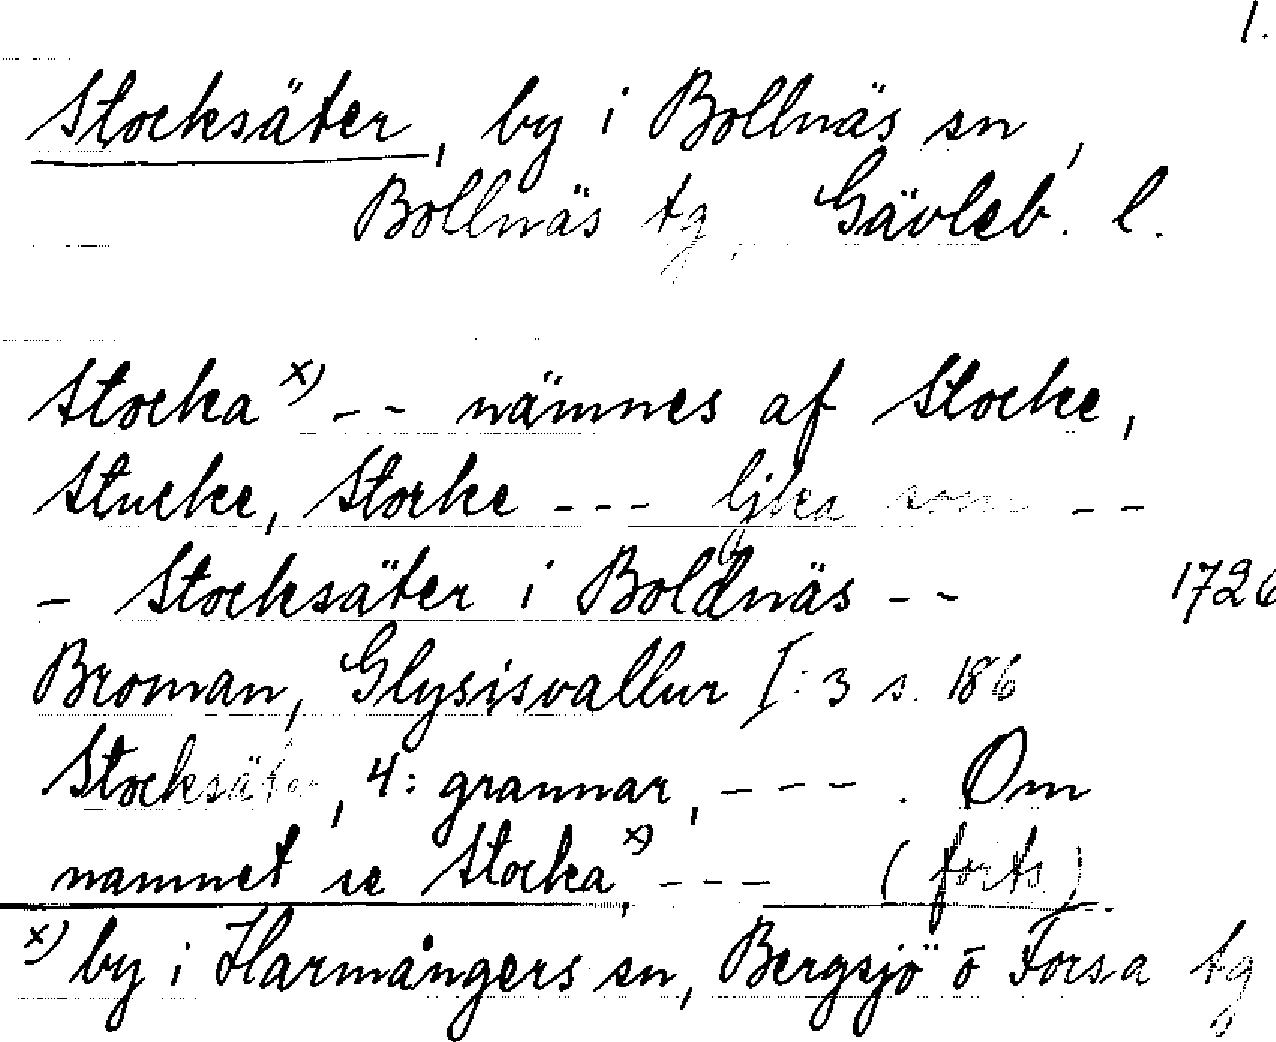 1.
Stocksäter, by i Bollnäs sn,
Bollnäs tg, Gävleb. l.
Stocka x) -- nämnes af Stocke,
Stucke, Storke --- ljka som --
- Stocksäter i Boldnäs -- 1726
Broman, Glysisvallur I:3 s. 186
Stocksäter, 4: grannar, ---. Om
namnet se Stocka x), --- (forts).
x) by i Harmångers sn, Bergsjö o Forsa tg